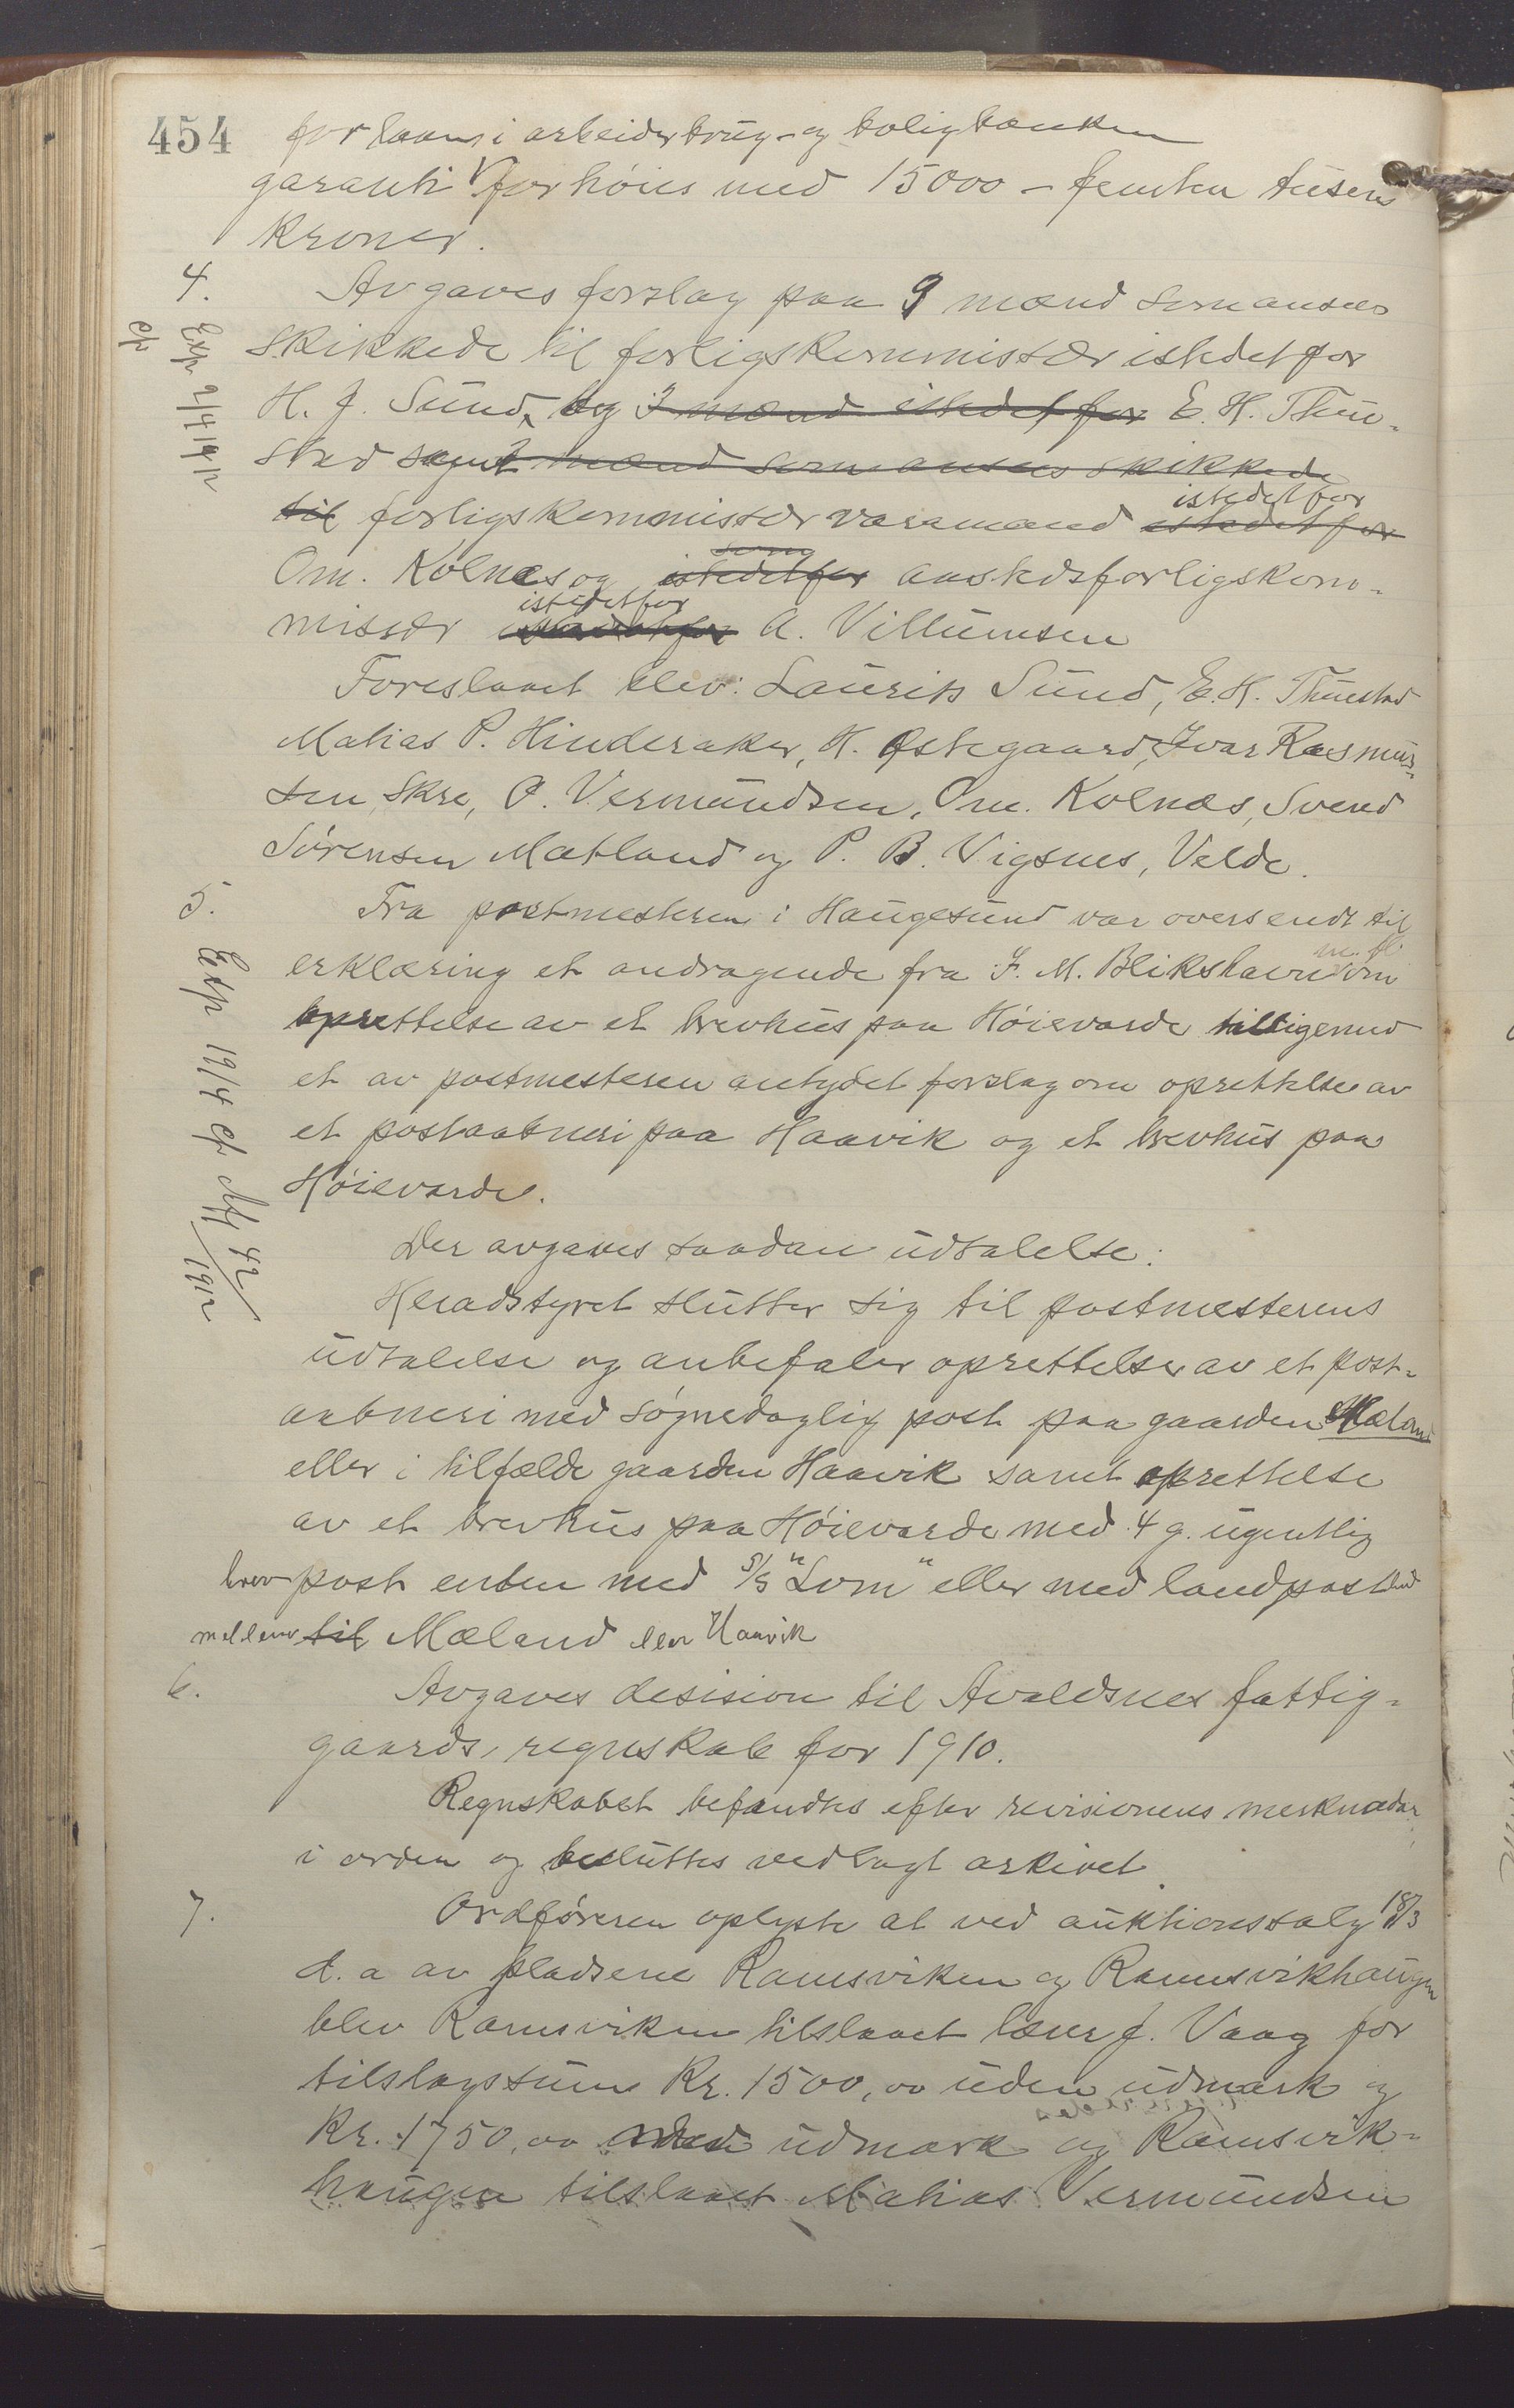 454
for laan i arbeiderbrug- og boligbanken
garanti forhöies med 15000 - femten tusen
kroner.
4.
Exp 2/4 1912
Avgaves forslag paa 9 mænd som ansees
skikkede til forligskommissær istedetfor
H. J. Sund, og 3 mænd istedet for E. H. Thue-
stad samt mænd som ansees skikkede
til forligskommissær varamænd istedet for istedetfor
Om. Kolnes og istedetfor som avskedsforligskom-
missær istedetfor A. Villumsen
Foreslaaet blev: Laurits Sund, E. H. Thuestad
Matias P. Hinderaker, H. Østegaard, Ivar Rasmus-
sen Skre, O. Vermundsen, Om. Kolnæs, Svend
Sörensen Mætland og P. B. Vigsnes, Velde.
5.
Exp 19/4 42/1912
Fra postmesteren i Haugesund var oversendt til
erklæring et andragende fra J. M. Blikshavn m. fl. om
oprettelse av et brevhus paa Höievarde tilligemed
et av postmesteren antydet forslag om oprettelse av
et postaabneri paa Haavik og et brevhus paa
Höievarde.
Der avgaves saadan udtalelse:
Heradstyret slutter sig til postmesterens
udtalelse og anbefaler oprettelse av et post-
aabneri med sögnedaglig post paa gaarden Mæland
eller i tilfælde gaarden Haavik samt oprettelse
av et brevhus paa Höievarde med 4 g. ugentlig
brevpost enten med S/S "Lom" eller med landpostbud
mellem til Mæland eller Haavik
6.
Avgaves desision til Avaldsnes fattig-
gaards regnskab for 1910.
Regnskabet befandtes efter revisionens merknader
i orden og besluttes vedlagt arkivet.
7.
Ordföreren oplyste at ved auktionssalg 18/3
d. a av pladsene Ramsviken og Ramsvikhaugen
blev Ramsviken tilslaaet J. Vaag for
tilslagssum Kr. 1500,00 uden udmark og
Kr. 1750,00 med udmark og Ramsvik-
haugen tilslaaet Matias Vermundsen